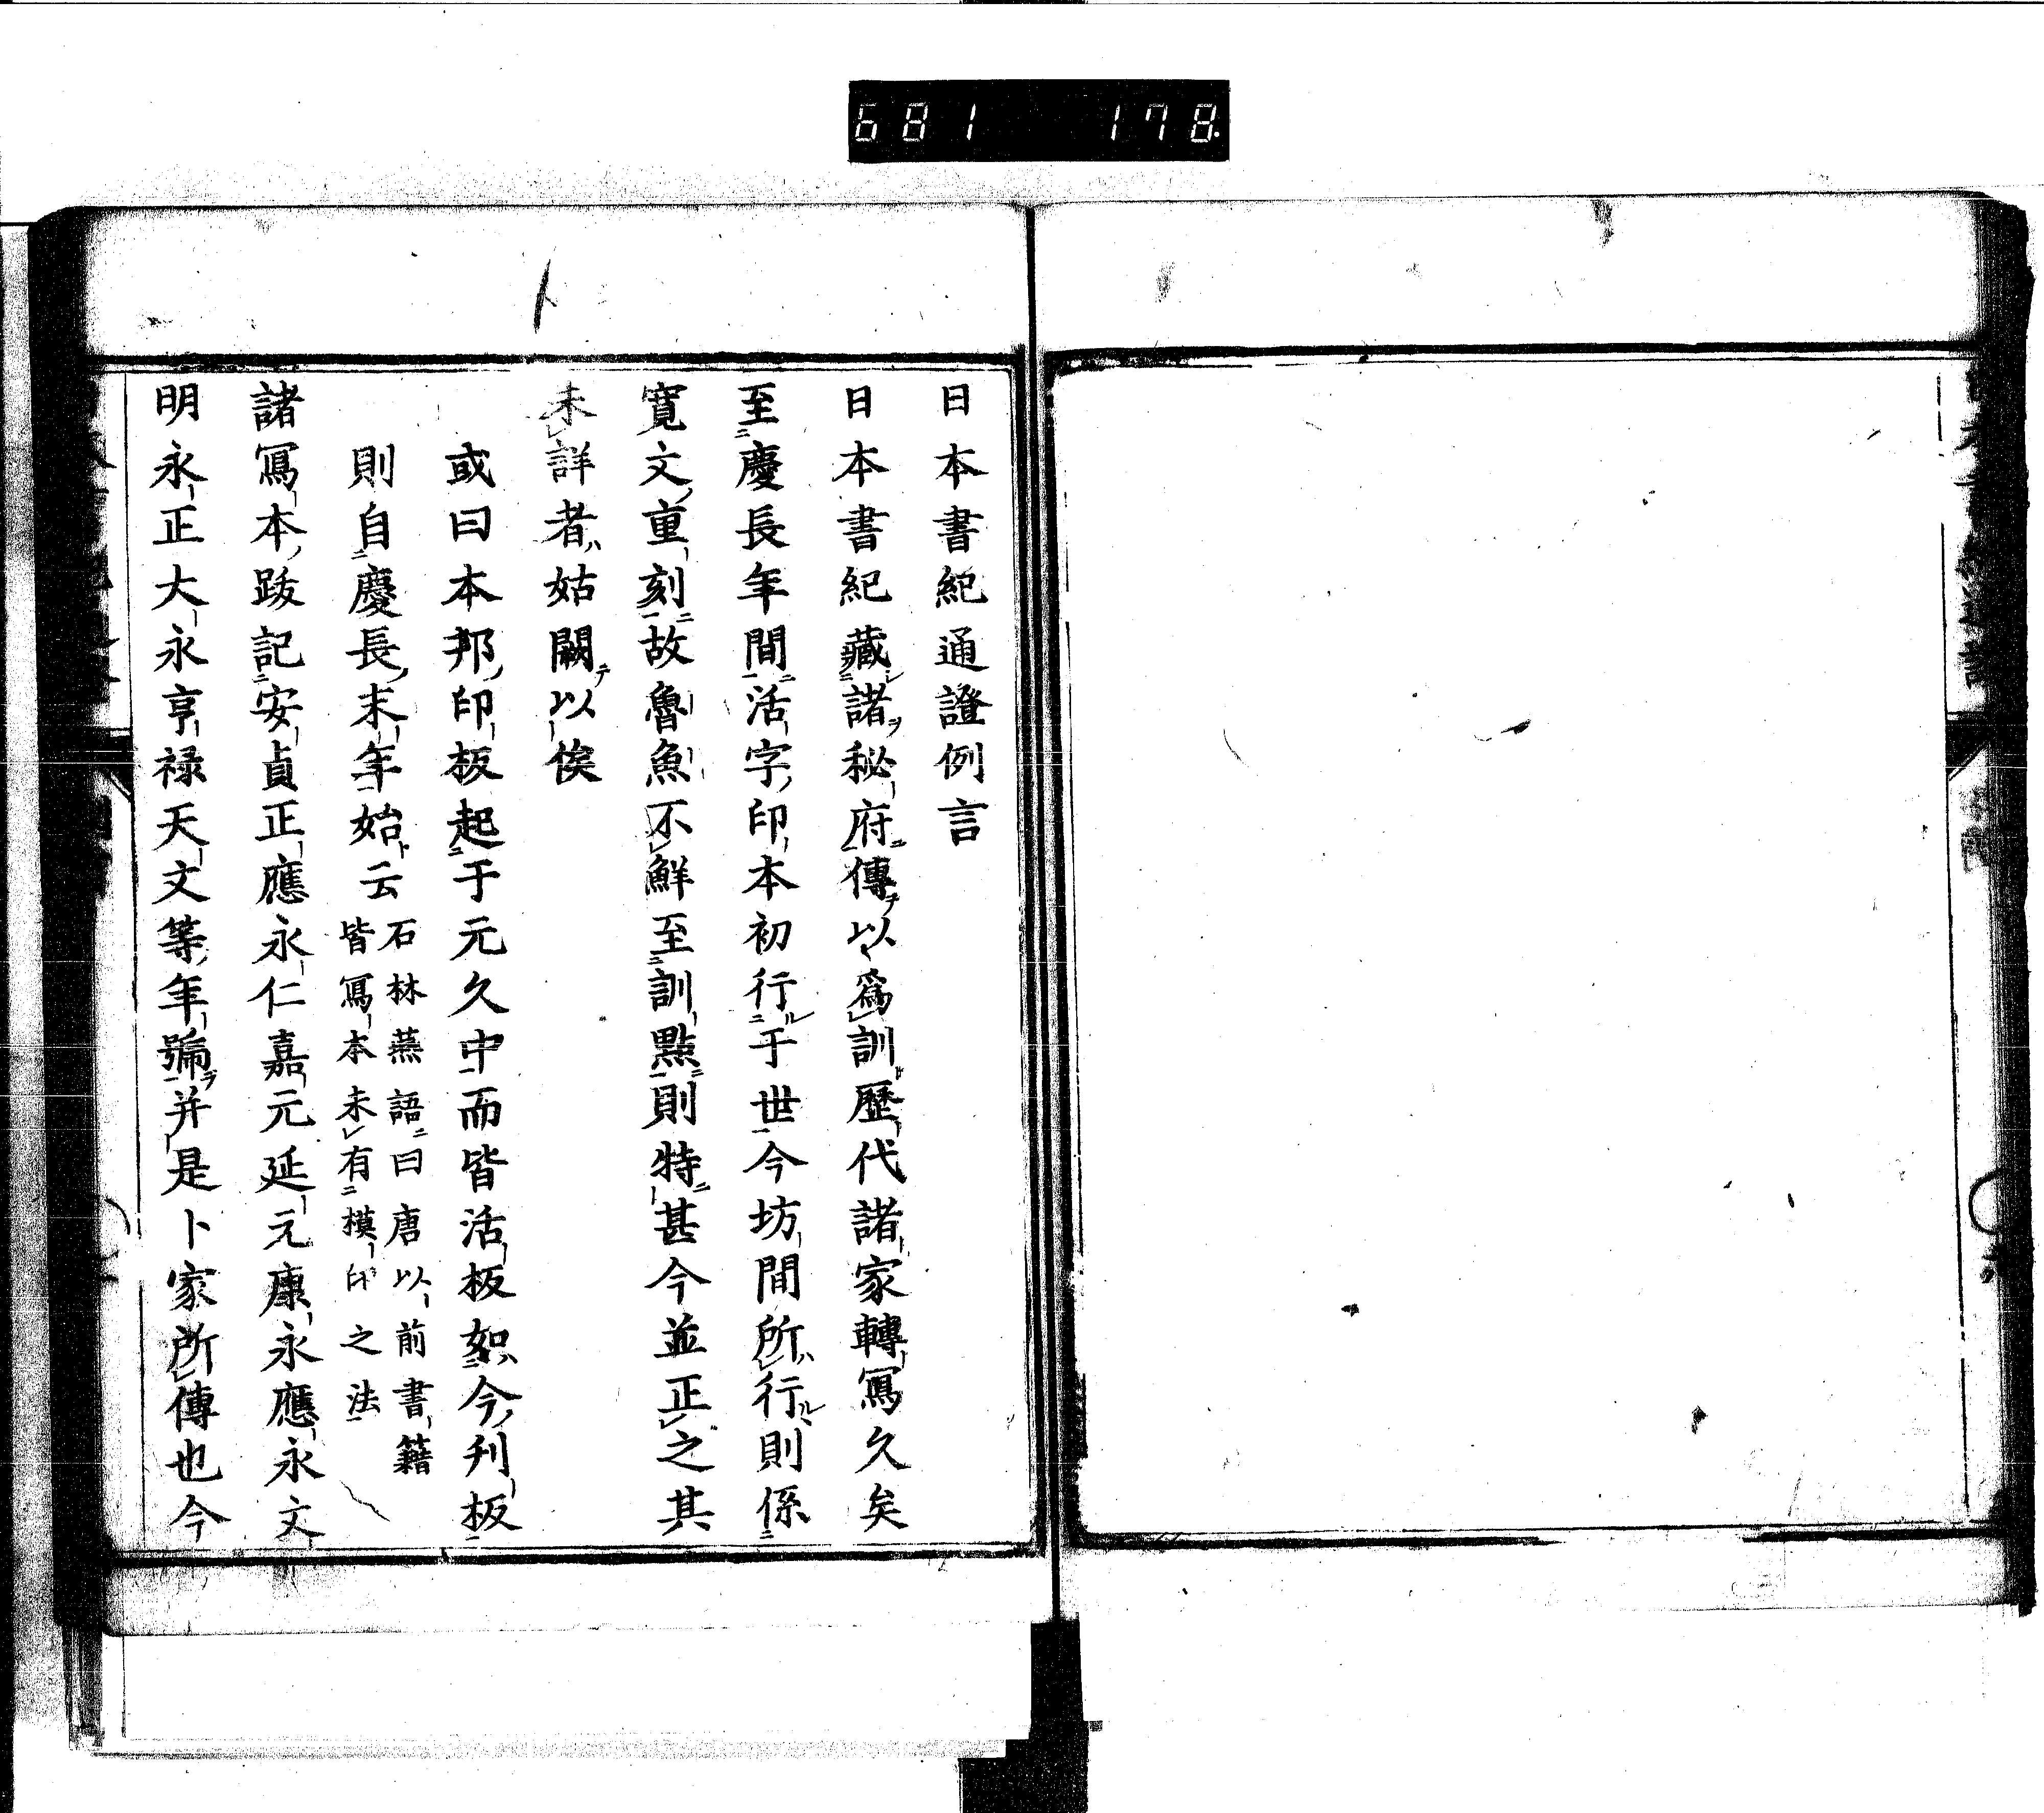 681 178
日本書紀通證例言
日本書紀藏諸秘府傳以爲訓歷代諸家轉寫久矣
至慶長年間活字印本初行于世今坊間所行則係
寛文重刻故魯魚不鮮至訓點則特甚今並正之其
未詳者姑闕以俟
或曰本邦印板起于元久中而皆活板如今刋板
則自慶長末年始云
石林燕語曰唐以前書籍
皆寫本未有模印之法
諸寫本跋記安貞正應永仁嘉元延元康永應永文
明永正大永亨禄天文等年號并是卜家所傳也今